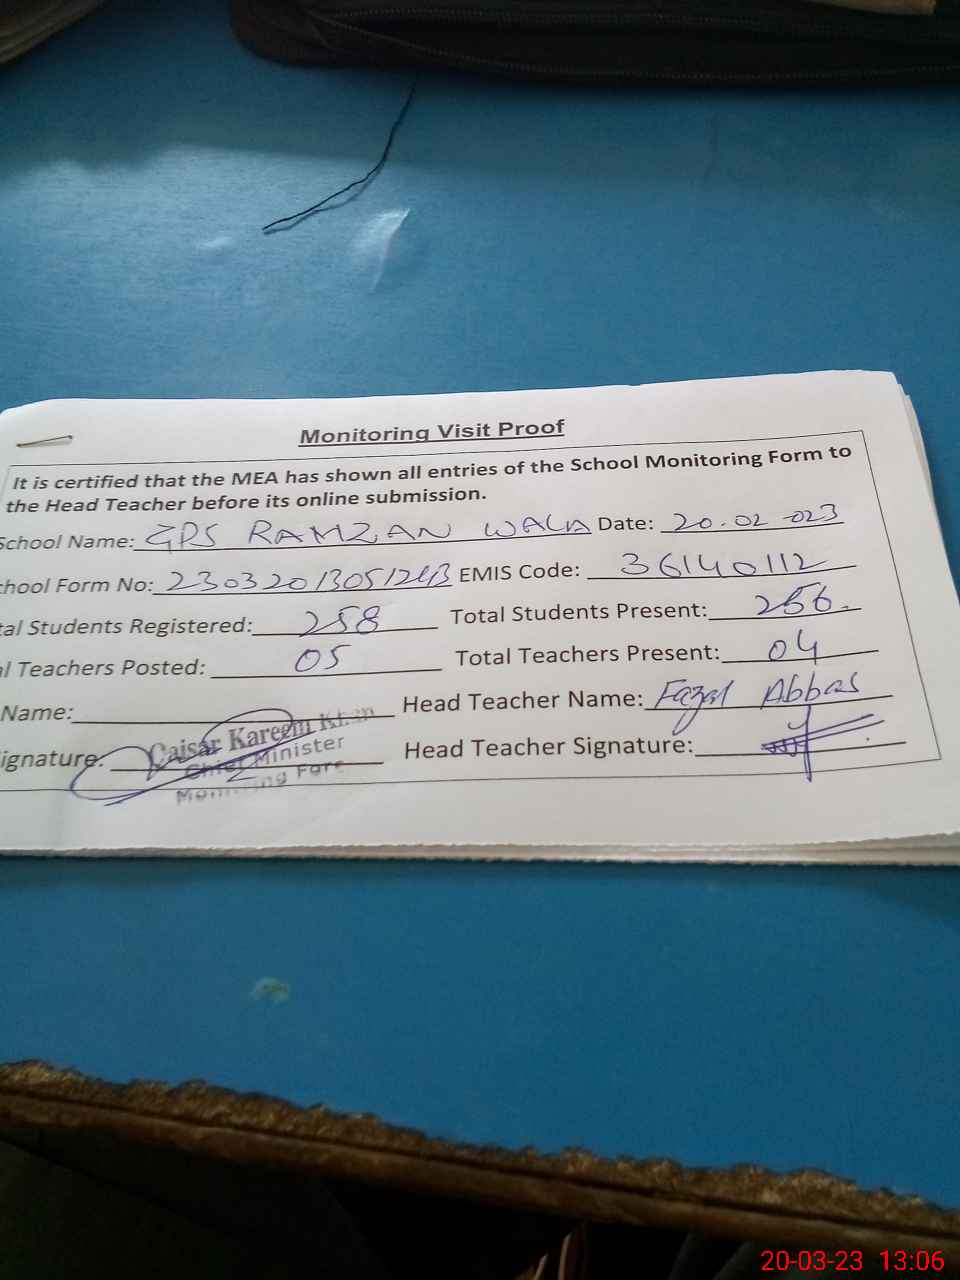 Monitoring Visit Proof
It is certified that the MEA has shown all entries of the School Monitoring Form to
the Head Teacher before its online submission.
School Name: GPS RAMZAN WALA Date: 20.02-023
chool Form No: EMIS Code: 36140112
tal Students Registered: 258 Total Students Present: 256.
l Teachers Posted: 05 Total Teachers Present: 04
Name: Head Teacher Name: Fazal Abbas
ignature: Head Teacher Signature:
Qaisar Kareem Khan
Chief Minister
Monitoring Forc
20-03-23 13:06